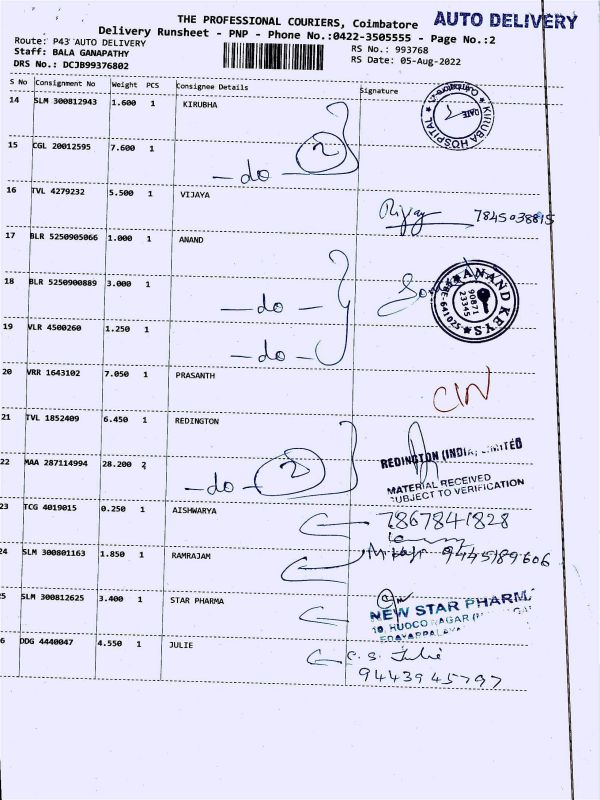 THE PROFESSIONAL COURIERS, Coimbatore AUTO DELIVERY
Delivery Runsheet - PNP - Phone No.:0422-3505555 - Page No.:2
Route: P43 AUTO DELIVERY
Staff: BALA GANAPATHY
DRS No.: DCJB99376802
RS No.: 993768
RS Date: 05-Aug-2022
S No Consignment No Weight PCS Consignee Details Signature
14 SLM 300812943 1.600 1 KIRUBHA
KIRUBA HOSPITAL
DATE
15 CGL 20012595 7.600 1
- do - 2
16 TVL 4279232 5.500 1 VIJAYA
7845038815
17 BLR 5250905066 1.000 1 ANAND
18 BLR 5250900889 3.000 1
- do -
ANAND KEYS
90871
23345
BE-641025
19 VLR 4500260 1.250 1
- do -
20 VRR 1643102 7.050 1 PRASANTH
21 TVL 1852409 6.450 1 REDINGTON
REDINGTON (INDIA) LIMITED
22 MAA 287114994 28.200 2
- do - 2
MATERIAL RECEIVED
SUBJECT TO VERIFICATION
23 TCG 4019015 0.250 1 AISHWARYA
7867841828
24 SLM 300801163 1.850 1 RAMRAJAM
9445189606
25 SLM 300812625 3.400 1 STAR PHARMA
NEW STAR PHARM
10, HUDCO NAGAR
26 DDG 4440047 4.550 1 JULIE
C. S. Julie
9443945797